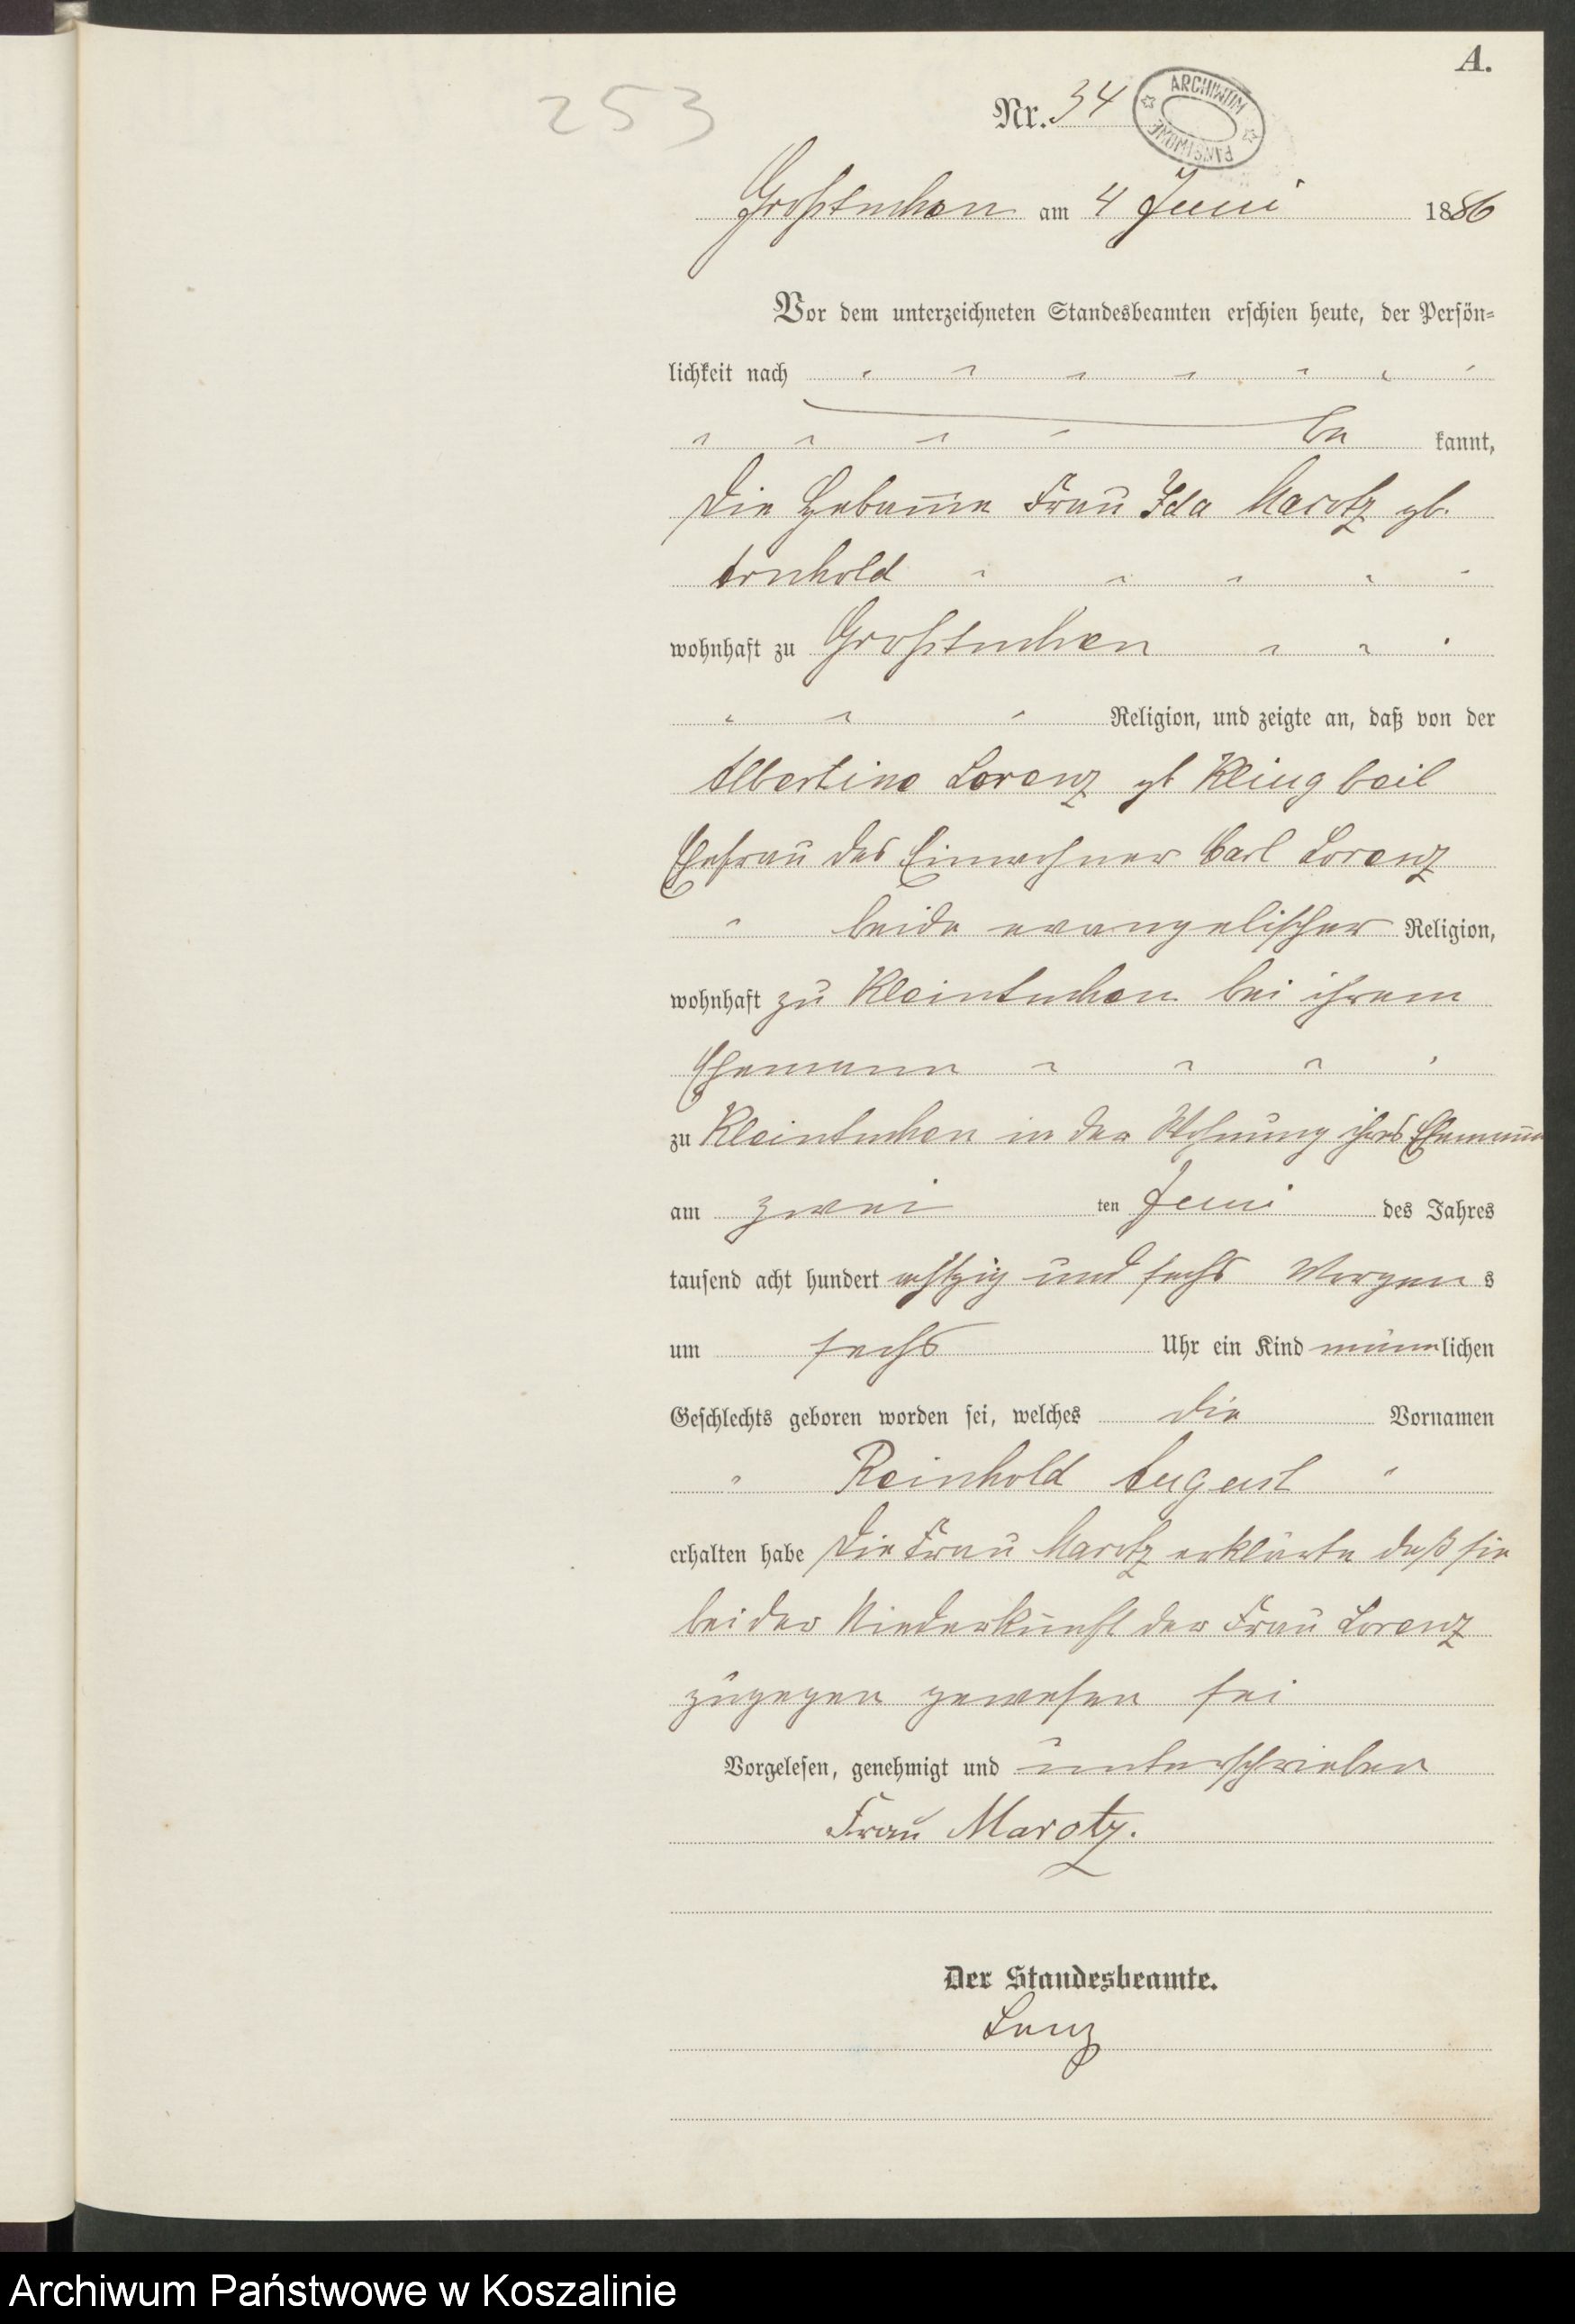 A.
253
Nr. 34
ARCHIWUM PAŃSTWOWE
Großtuchen am 4 Juni 1886
Vor dem unterzeichneten Standesbeamten erschien heute, der Persön-
lichkeit nach
be kannt,
die Hebamme Frau Ida Marotz gb.
Arnhold
wohnhaft zu Großtuchen
Religion, und zeigte an, daß von der
Albertine Lorenz gb Klingbeil
Ehefrau des Einwohner Carl Lorenz
beide evangelischer Religion,
wohnhaft zu Kleintuchen bei ihrem
Ehemann
zu Kleintuchen in der Wohnung ihres Ehemann
am zwei ten Juni des Jahres
tausend acht hundert achtzig und sechs Morgen s
um sechs Uhr ein Kind männlichen
Geschlechts geboren worden sei, welches die Vornamen
Reinhold August
erhalten habe die Frau Marotz erklärte daß sie
bei der Niederkunft der Frau Lorenz
zugegen gewesen sei
Vorgelesen, genehmigt und unterschrieben
Frau Marotz.
Der Standesbeamte.
Lenz
Archiwum Państwowe w Koszalinie